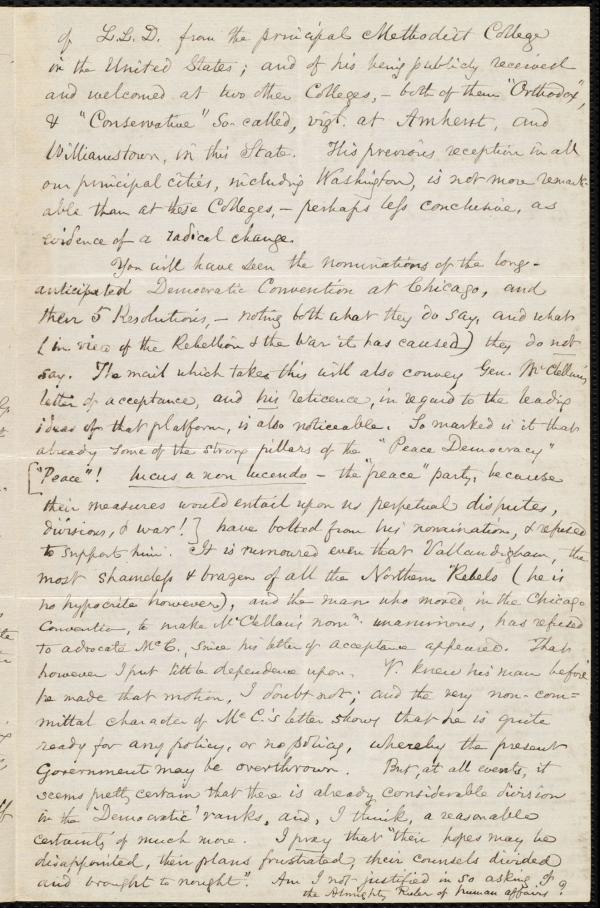 of L.L.D. from the principal Methodist College
in the United States; and of his being publicly received
and welcomed at two other Colleges, - both of them "Orthodox",
& "Conservative" So-called, vizt. at Amherst, and
Williamstown, in this State. His previous reception in all
our principal cities, including Washington, is not more remark-
able than at these Colleges, - perhaps less conclusive, as
evidence of a radical change.
You will have seen the nominations of the long-
anticipated Democratic Convention at Chicago, and
their 5 Resolutions, - noting both what they do say, and what
(in view of the Rebellion & the War it has caused) they do not
say. The mail which takes this will also convey Gen. McClellan's
letter of acceptance, and his reticence, in regard to the leading
ideas of that platform, is also noticeable. So marked is it that
already some of the strong pillars of the "Peace Democracy"
["Peace"! lucus a non lucendo - the "peace" party, because
their measures would entail upon us perpetual disputes,
divisions, & war!] have bolted from his nomination, & refused
to support him. It is rumoured even that Vallandigham, the
most shameless & brazen of all the Northern Rebels (he is
no hypocrite however), and the man who moved, in the Chicago
Convention, to make McClellan's nomn. unanimous, has refused
to advocate McC., since his letter of acceptance appeared. That
however I put little dependence upon. V. knew his man before
he made that motion, I doubt not; and the very non-com=
mittal character of McC.'s letter shows that he is quite
ready for any policy, or no policy, whereby the present
Government may be overthrown. But, at all events, it
seems pretty certain that there is already considerable division
in the 'Democratic' ranks, and, I think, a reasonable
certainty of much more. I pray that "their hopes may be
disappointed, their plans frustrated, their counsels divided
and brought to nought". Am I not justified in so asking of
the Almighty Ruler of human affairs?